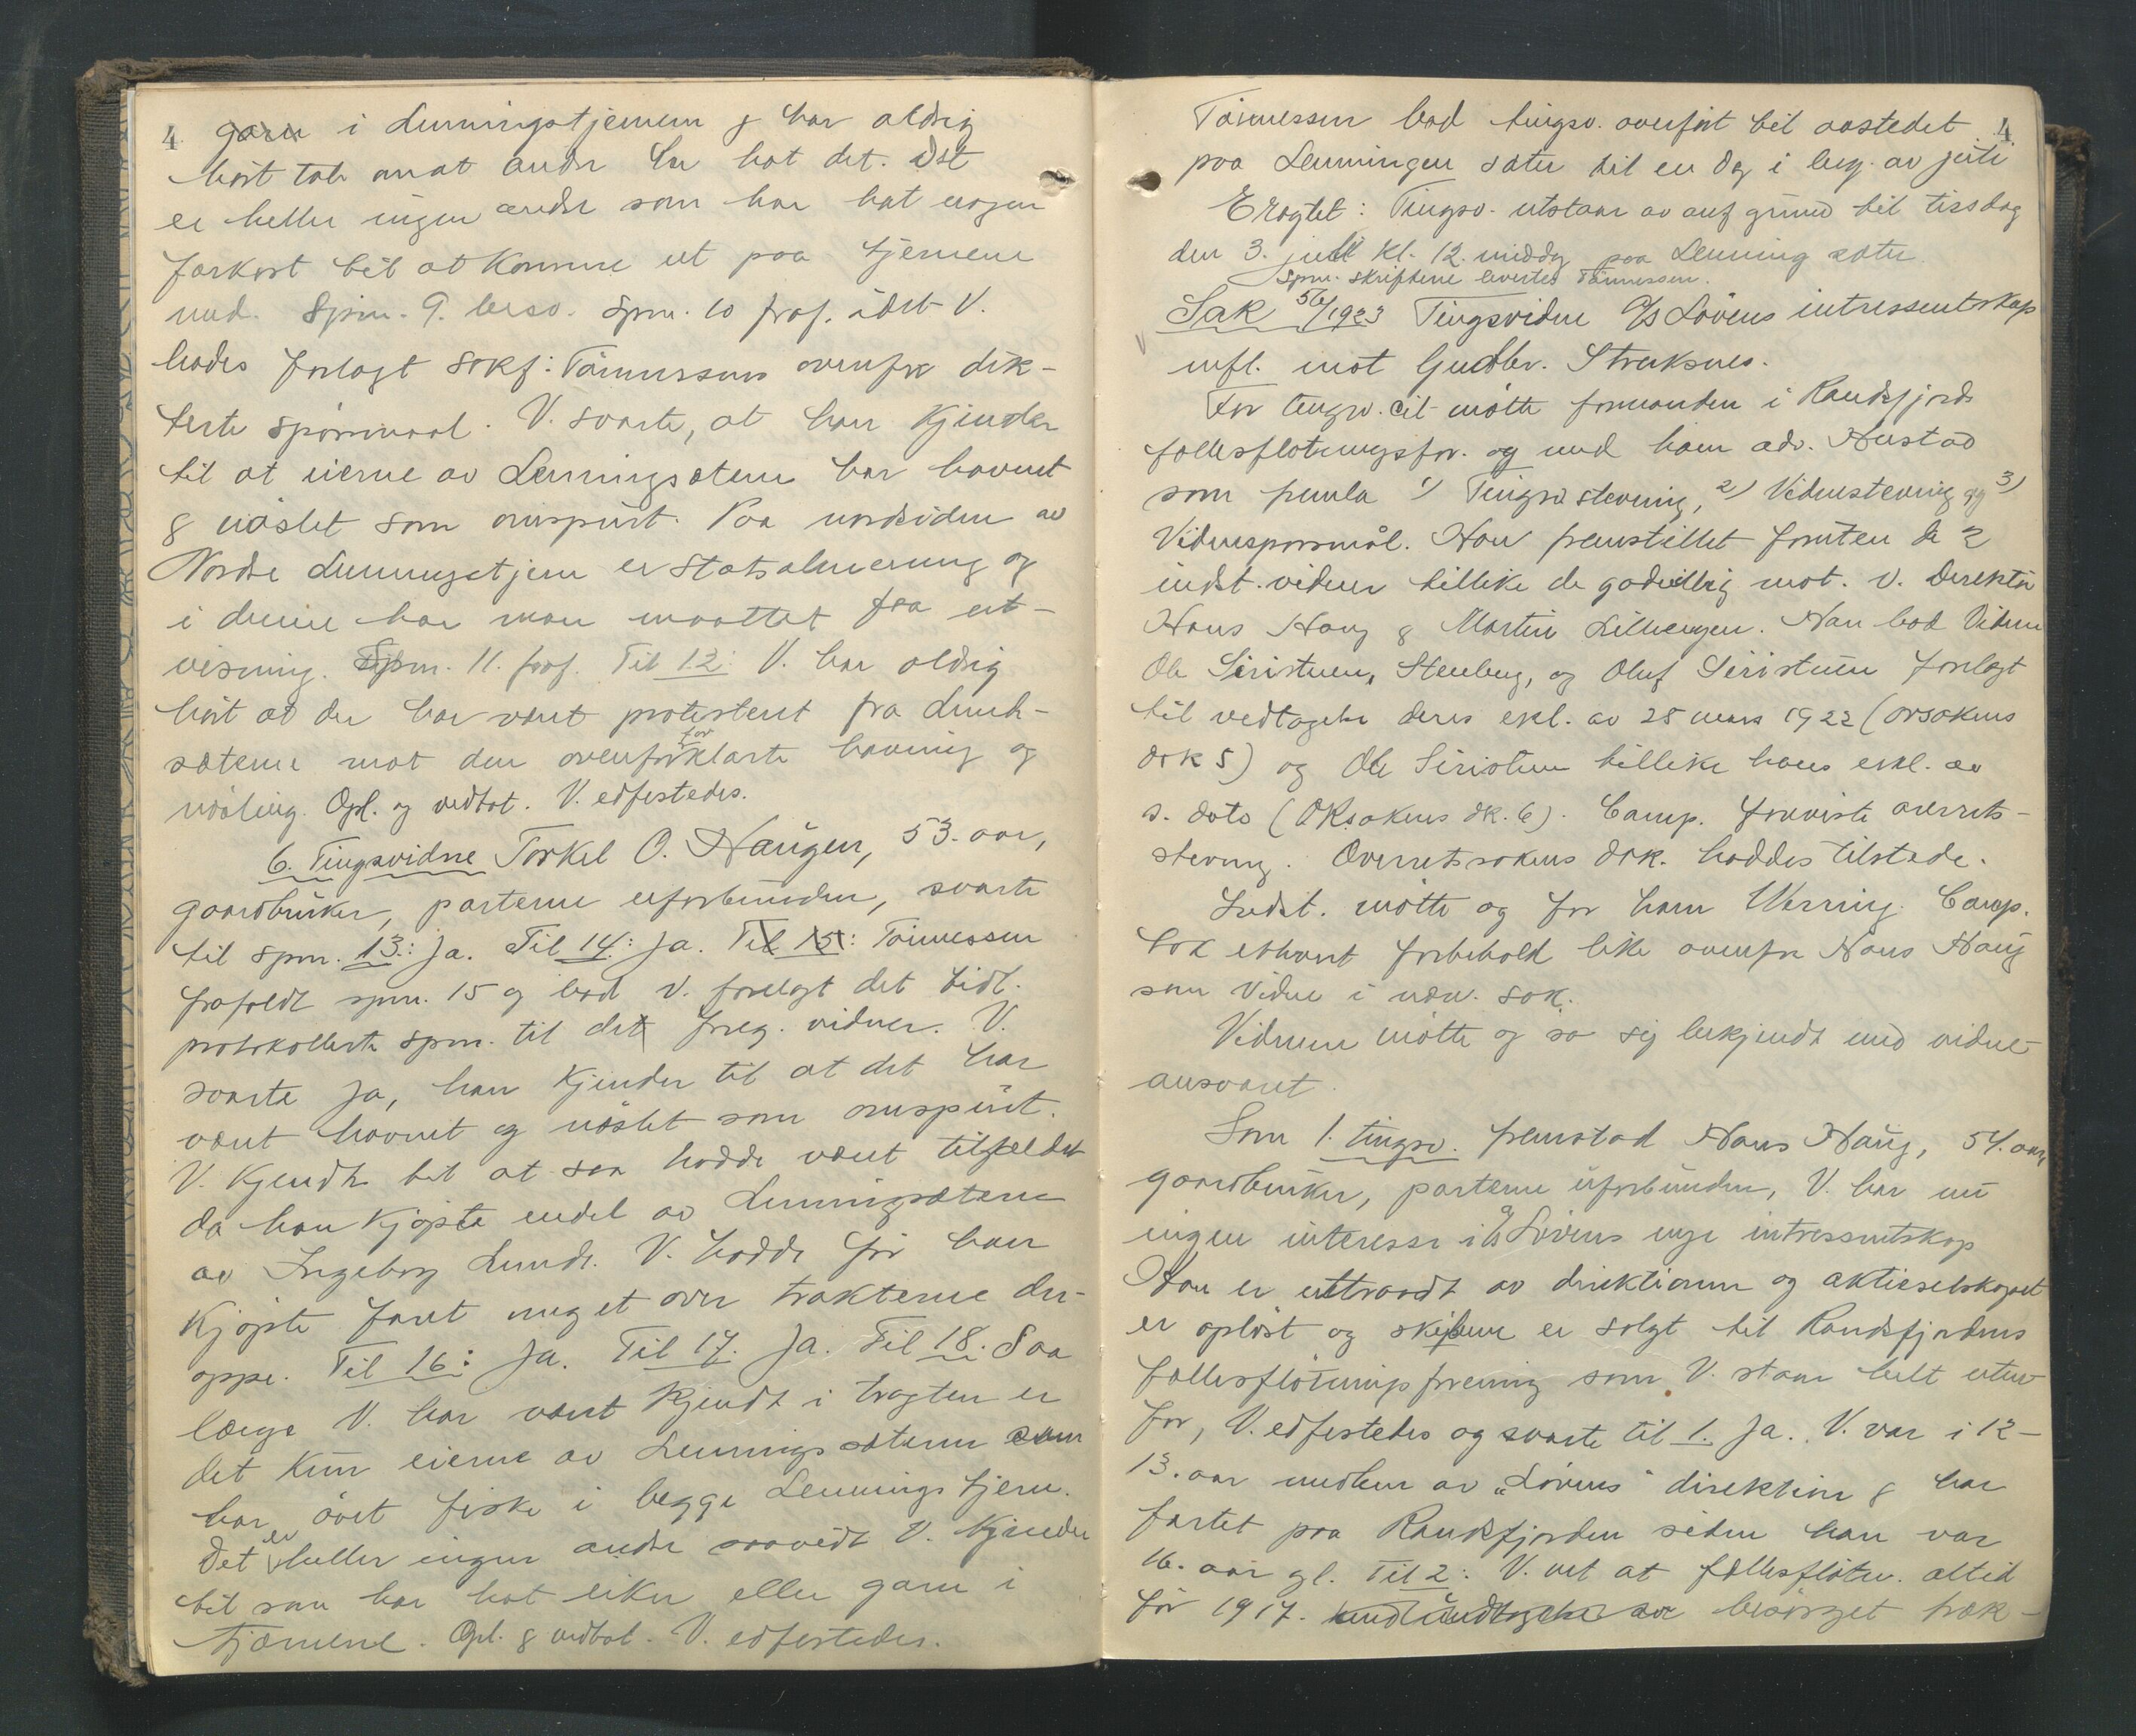 4 garn i Lenningstjernene & har aldrig
hört tale om at andre har hat det. Det
er heller ingen andre som har hat nogen
farkost til at komme ut paa tjernene
med. Spm. 9. besv. Spm. 10 fraf. idet V.
bades forlagt sakf: Tönnessens ovenfor dik-
terte spörsmaal. V. svarte, at han kjender
til at eierne av Lenningsæterne har havnet
& nöslet som omspurt. Paa nordsiden av
Nordre Lenningstjern er Statsalmenning og
i denne har man maattet faa ut-
visning. Spm. 11. fraf. Til 12: V. har aldrig
hört at der har været protestert fra Lunde-
sæterne mot den ovenfor forklarte havning og
nösling. Opl. og vedtat. V. edfestedes.
6. Tingsvidne Torkel O. Haugen, 53. aar,
gaardbruker, parterne uforbunden, svarte
til spm. 13: Ja. Til 14: Ja. Til 15: Tönnessen
frafaldt spm. 15 og bad V. forelagt det tidl.
protokollerte spm. til det foreg. vidner. V.
svarte Ja, han kjender til at det har
været havnet og nöslet som omspurt.
V. kjendte til at saa hadde været tilfældet
da han kjöpte endel av Lenningsæterne
av Ingeborg Lunde. V. hadde för han
kjöpte faret meget over trakterne der-
oppe. Til 16: Ja. Til 17. Ja. Til 18. Saa
længe V. har været kjendt i tragten er
det kun eierne av Lenningssæterne som
har övet fiske i begge Lenningstjern.
Det er heller ingen andre saavidt V. kjender
til som har hat eiker eller garn i
tjernene. Opl. & vedtat. V. edfestedes.
Tönnessen bad tingsv. overfört til aastedet 4
paa Lenningen sæter til en dag i beg. av juli
Eragtet: Tingsv. utstaar av anf grund til tirsdag
den 3. juli kl. 12. middag paa Lenning sæter.
Spm. skriftene levertes Tönnessen.
Sak 56/1923 Tingsvidne A/S Lövens intressentskap
mfl. mot Gudbr. Straksnes.
For tingsv. cit. mötte formanden i Randsfjords
fællesflötningsfor. og med ham adv. Hustad
som fremla 1) Tingsv. stevning, 2) Vidnestevning og 3)
Vidnesporsmål. Han fremstillet foruten de 2
indst. vidner tillike de godvillig möt. v. direktör
Hans Haug & Martin Lillengen. Han bad Vidne
Ole Siristuen, Stenberg, og Oluf Siristuen forelagt
til vedtagelse deres erkl. av 28 mars 1922 (orsakens
dok 5) og Ole Siristuen tillike hans erkl. av
s. dato (ORsakens dk. 6). Comp. foreviste overrets-
stevning. Overretssakens dok. haddes tilstede.
Indst. mötte og for ham Werring. Comp.
tok ethvert forbehold like overfor Hans Haug
som vidne i nærv. sak.
Vidnene mötte og sa sig bekjendt med vidne-
ansvaret.
Som 1. tingsv. fremstod Hans Haug, 54. aar,
gaardbruker, parterne uforbunden, V. har nu
ingen interesse i A/S Lövens nye intressentskap
Han er uttraadt av direktionen og aktieselskapet
er oplöst og skibene er solgt til Randsfjordens
fællesflötningsforening som V. staar helt uten-
for, V. edfestedes og svarte til 1. Ja. V. var i 12-
13. aar medlem av „Lövens" direktion & har
fartet paa Randsfjorden siden han var
16. aar gl. Til 2: V. vet at fællesflötn. altid
för 1917. besörget træk-